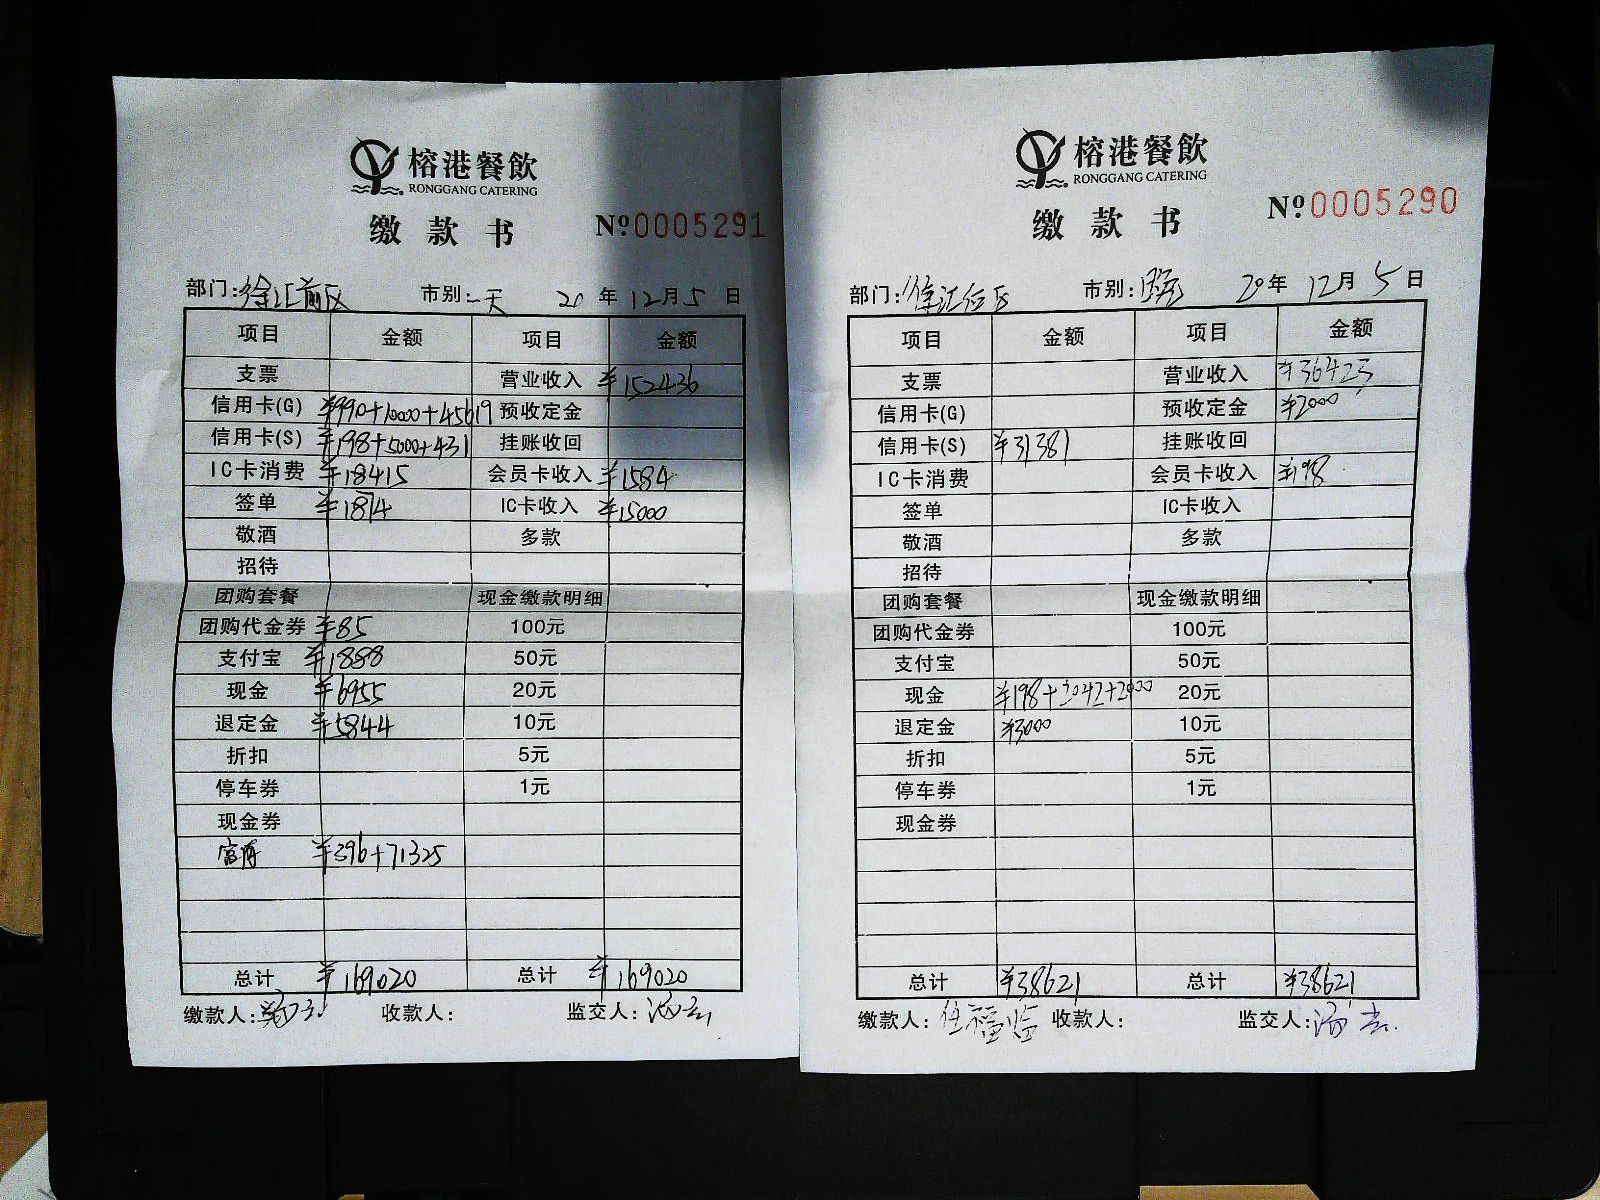 榕港餐飲
RONGGANG CATERING
缴款书
№0005291
部门:徐汇前区 市别:一天 20年12月5日
项目 金额 项目 金额
支票 营业收入 ¥152436
信用卡(G) ¥990+10000+45619 预收定金
信用卡(S) ¥198+5000+431 挂账收回
IC卡消费 ¥18415 会员卡收入 ¥1584
签单 ¥1874 IC卡收入 ¥15000
敬酒 多款
招待
团购套餐 现金缴款明细
团购代金券 ¥85 100元
支付宝 ¥1888 50元
现金 ¥6955 20元
退定金 ¥5844 10元
折扣 5元
停车券 1元
现金券
¥396+71325
总计 ¥169020 总计 ¥169020
缴款人: 收款人: 监交人:
榕港餐飲
RONGGANG CATERING
缴款书
№0005290
部门:徐汇后区 市别: 20年12月5日
项目 金额 项目 金额
支票 营业收入 ¥36423
信用卡(G) 预收定金 ¥2000
信用卡(S) ¥31381 挂账收回
IC卡消费 会员卡收入 ¥198
签单 IC卡收入
敬酒 多款
招待
团购套餐 现金缴款明细
团购代金券 100元
支付宝 50元
现金 ¥198+2042+2000 20元
退定金 ¥3000 10元
折扣 5元
停车券 1元
现金券
总计 ¥38621 总计 ¥38621
缴款人: 收款人: 监交人: